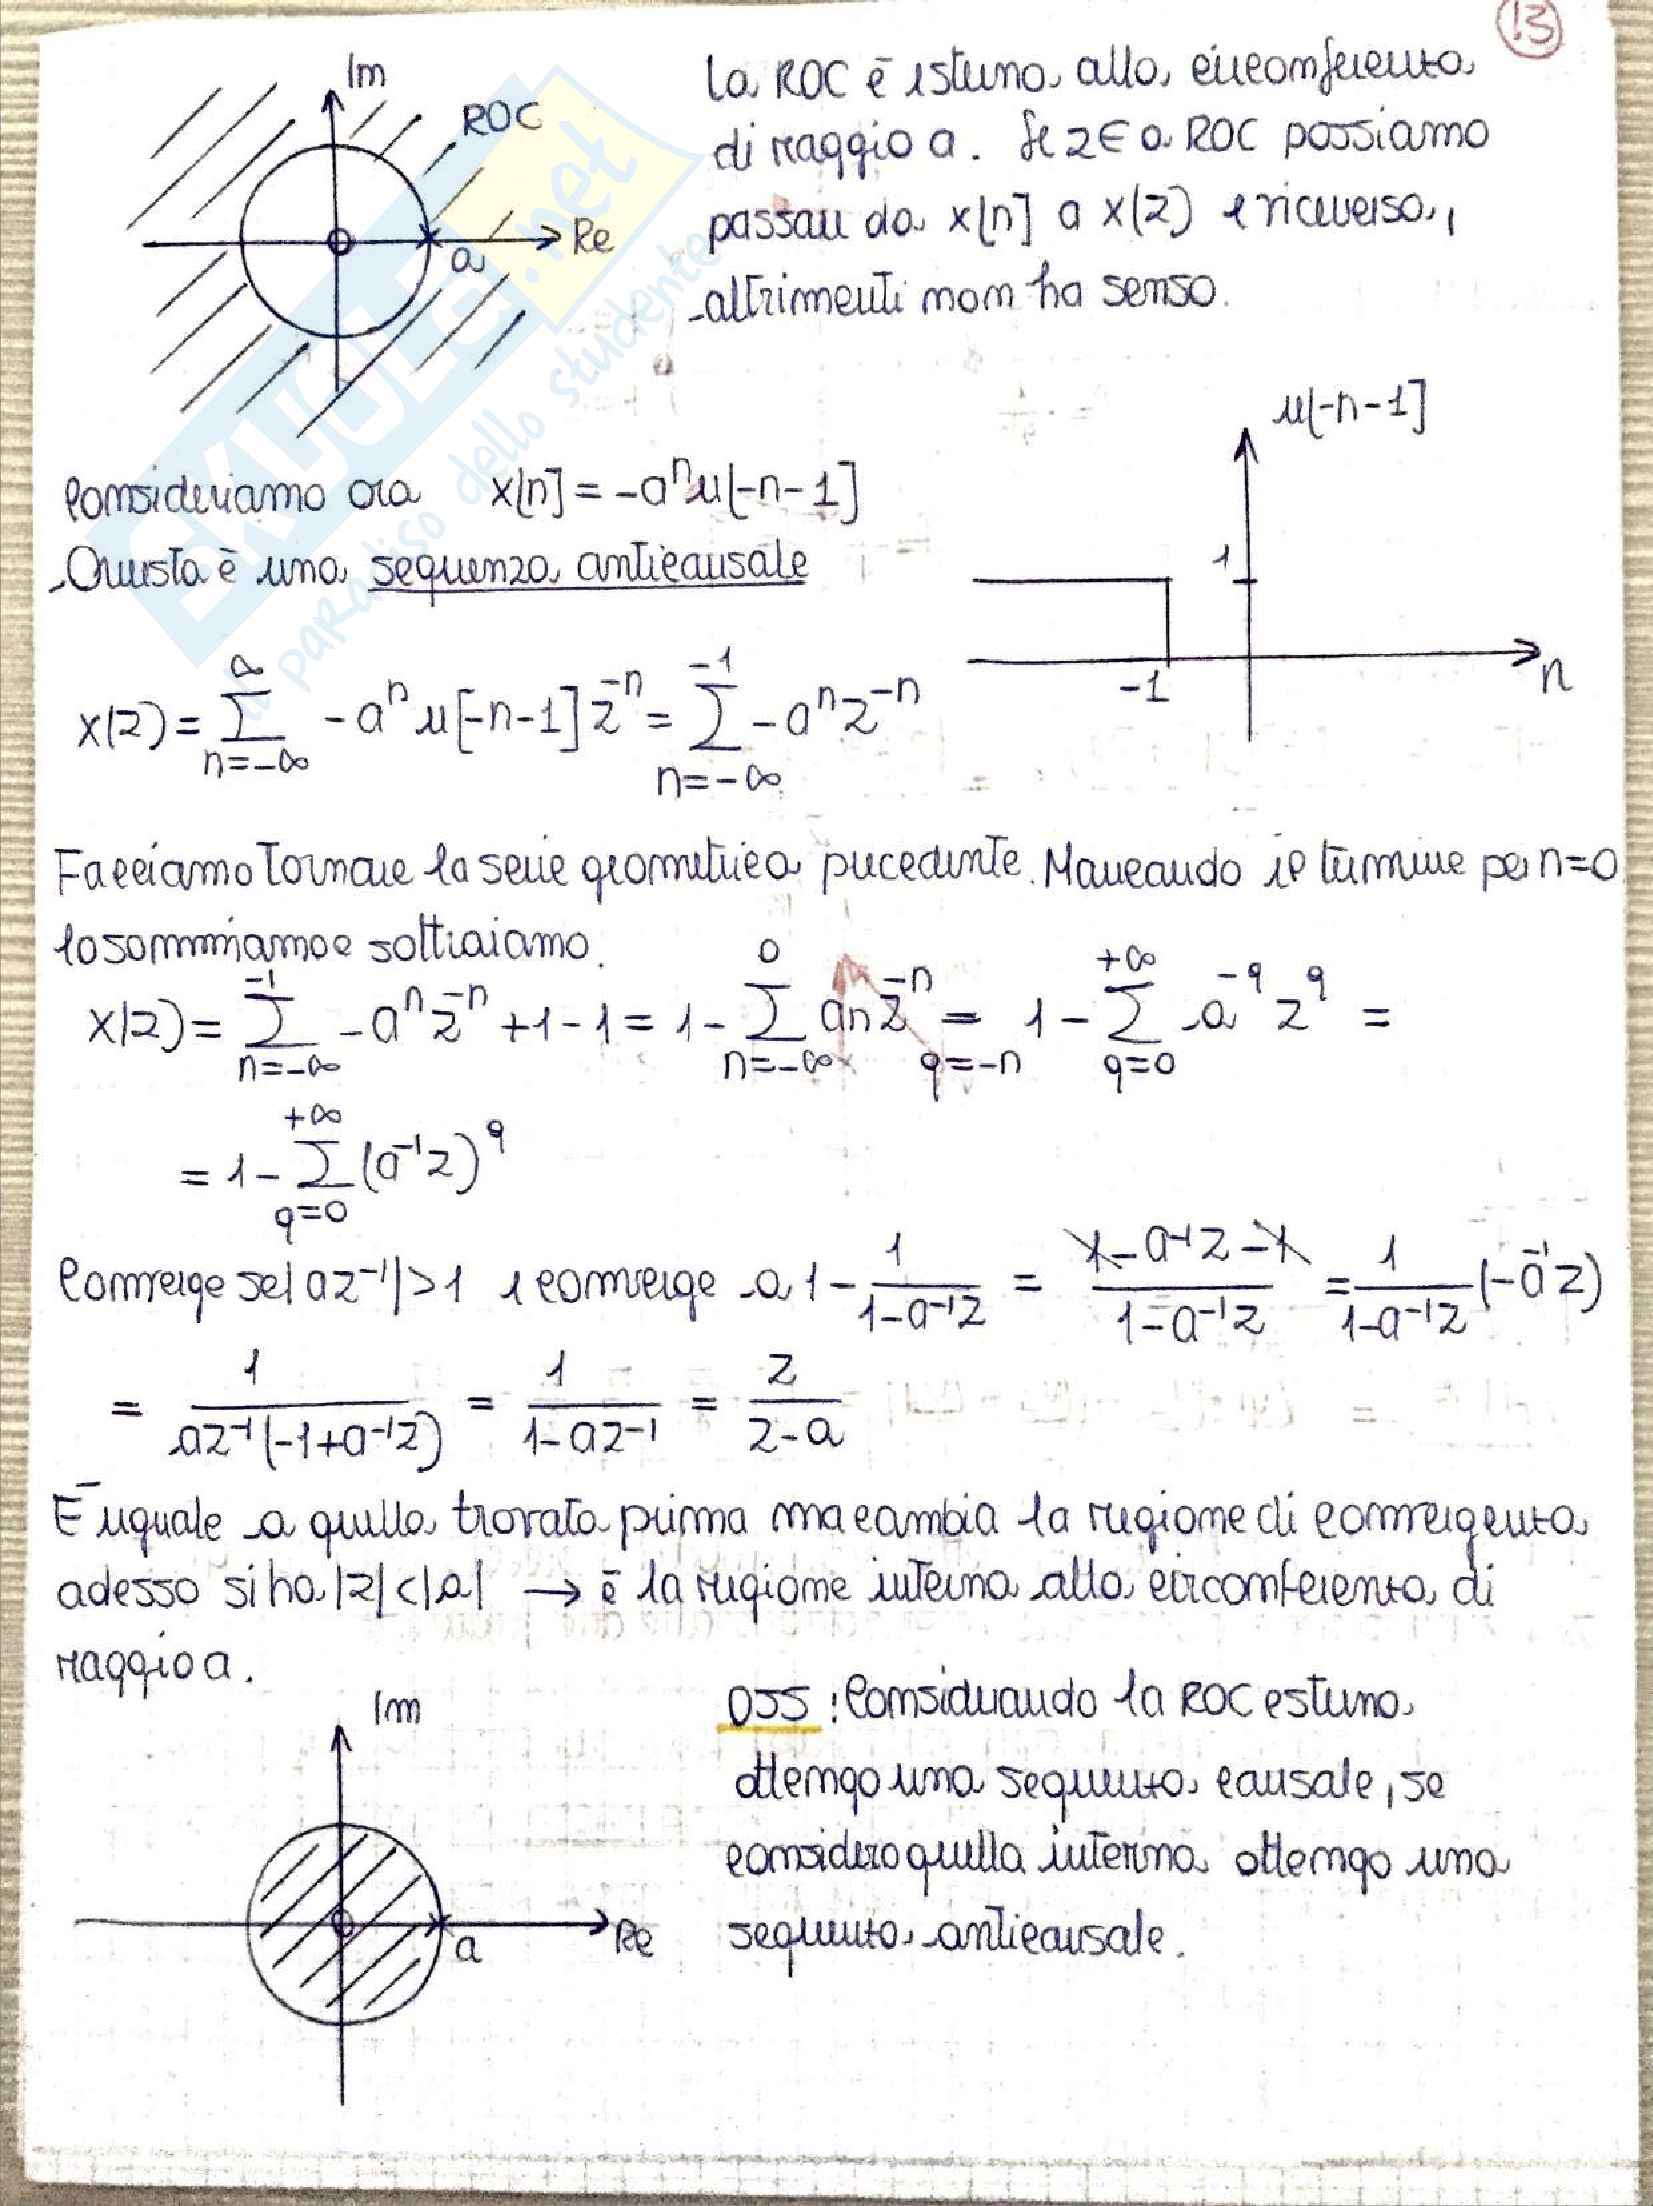 13
Im
ROC
Re
a
La ROC è esterna alla circonferenza
di raggio a. Se z∈ a ROC possiamo
passare da x[n] a x(z) e viceversa,
altrimenti non ha senso.
Consideriamo ora x[n] = -aⁿu[-n-1]
Questa è una sequenza anticausale
u[-n-1]
1
-1
n
x(z) = ∑_{n=-∞}^{∞} -aⁿ u[-n-1] z⁻ⁿ = ∑_{n=-∞}^{-1} -aⁿ z⁻ⁿ
Facciamo tornare la serie geometrica precedente. Mancando il termine per n=0
lo sommiamo e sottraiamo.
x(z) = ∑_{n=-∞}^{-1} -aⁿ z⁻ⁿ + 1 - 1 = 1 - ∑_{n=-∞}^{0} an z⁻ⁿ = 1 - ∑_{q=0}^{+∞} a^{-q} z^q =
q=-n
= 1 - ∑_{q=0}^{+∞} (a⁻¹z)^q
Converge se |az⁻¹| > 1 e converge a 1 - 1/(1-a⁻¹z) = (1-a⁻¹z-1)/(1-a⁻¹z) = 1/(1-a⁻¹z) (-a⁻¹z)
= 1/(az⁻¹(-1+a⁻¹z)) = 1/(1-az⁻¹) = z/(z-a)
È uguale a quella trovata prima ma cambia la regione di convergenza
adesso si ha |z|<|a| → è la regione interna alla circonferenza di
raggio a.
Im
Re
a
OSS : Considerando la ROC esterna
ottengo una sequenza causale, se
considero quella interna ottengo una
sequenza anticausale.
SKUOLA.net
il paradiso dello studente